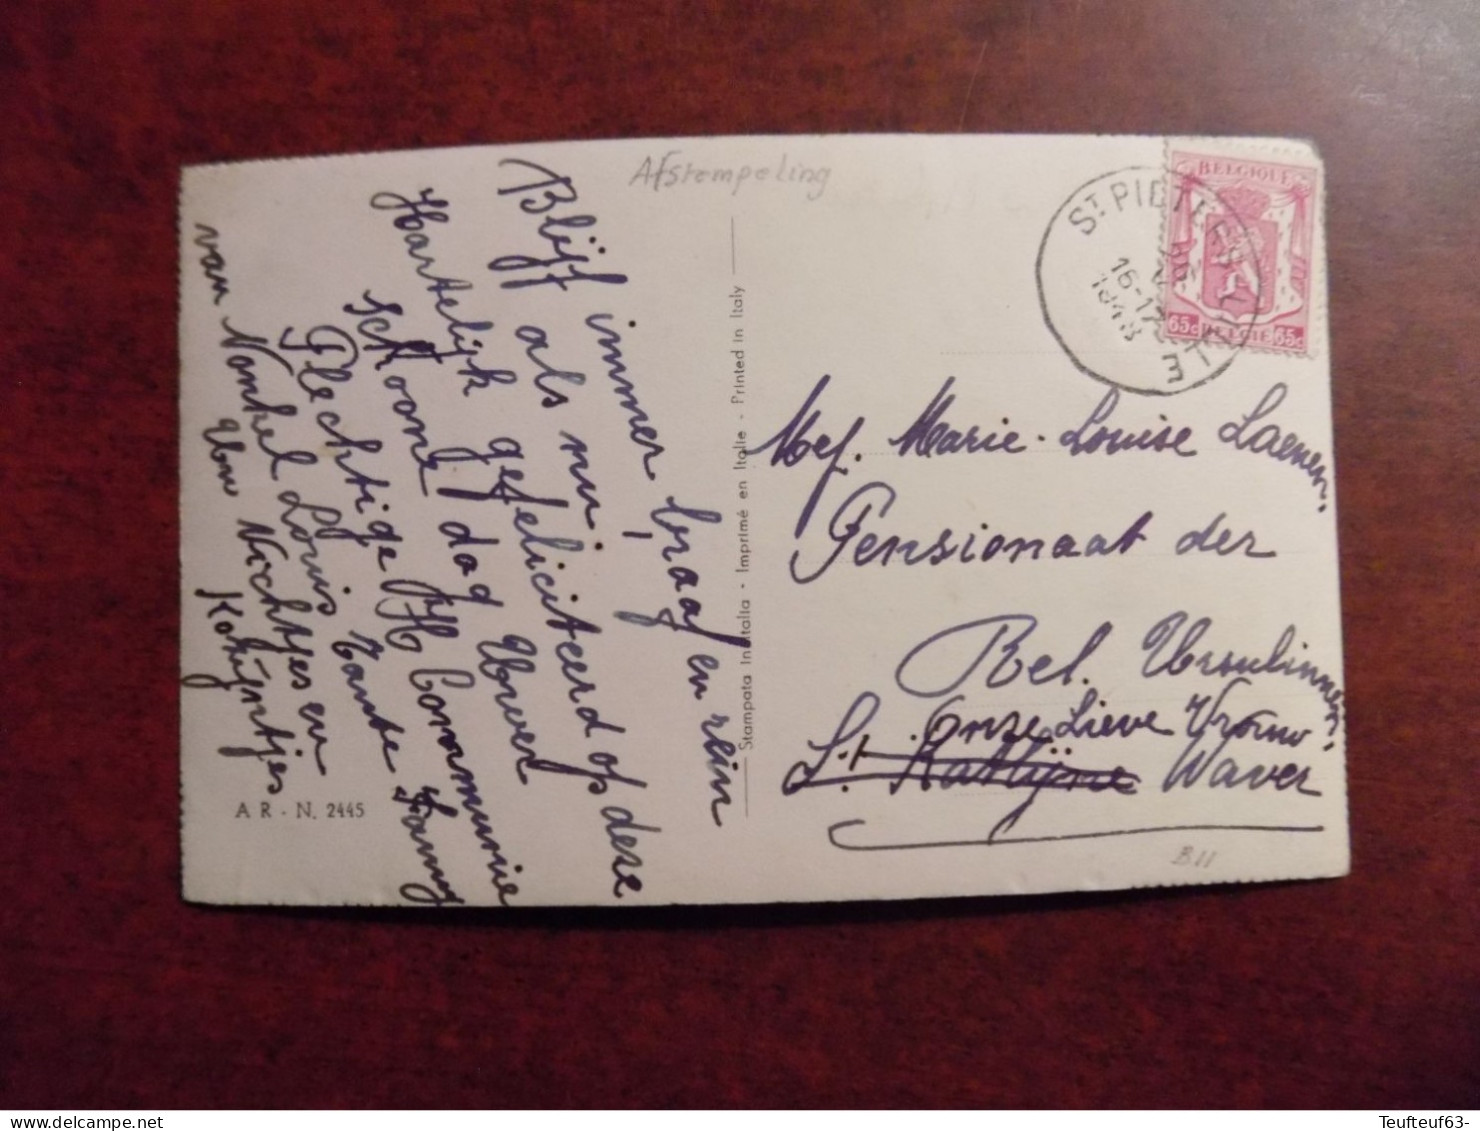 Afstempeling
Blijf immer braaf en rein
als nu
Hartelijk gefeliciteerd op deze
schoone dag Uwer
Plechtige H Communie
van Nonkel Louis Tante Fanny
Uw Nichtjes en
Kozijntjes
A R - N. 2445
Stampata in Italia - Imprimé en Italie - Printed in Italy
BELGIQUE
65c BELGIE 65c
16-17
1948
Mej. Marie-Louise Laenen,
Pensionaat der
Rel. Ursulinnen,
Onze Lieve Vrouw
St Katlijne Waver
B11
Teufteuf63-
delcampe.net